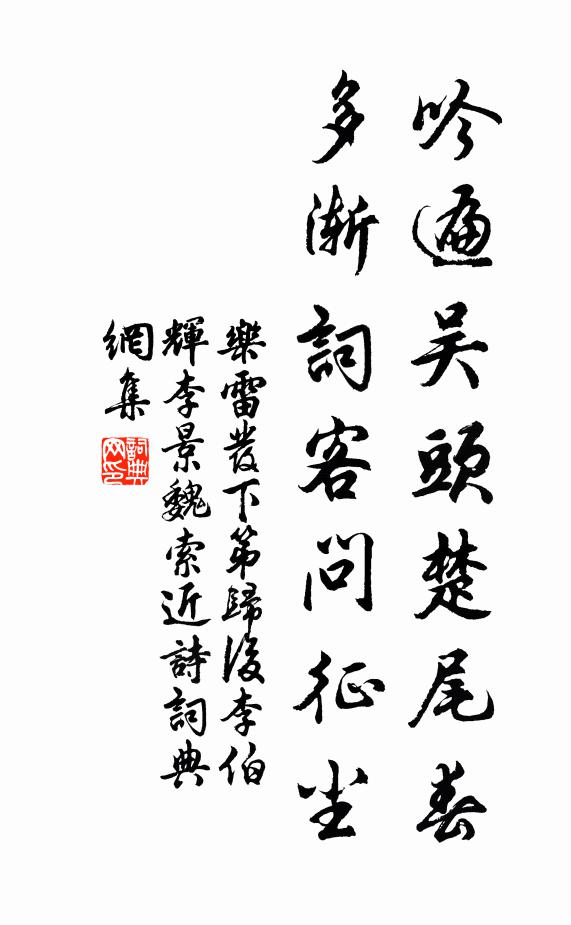 吟遍吴頭楚尾春
多漸詞客問征尘
樂雷發下第歸後李伯
輝李景魏索近詩詞典
網集
詞典
网印